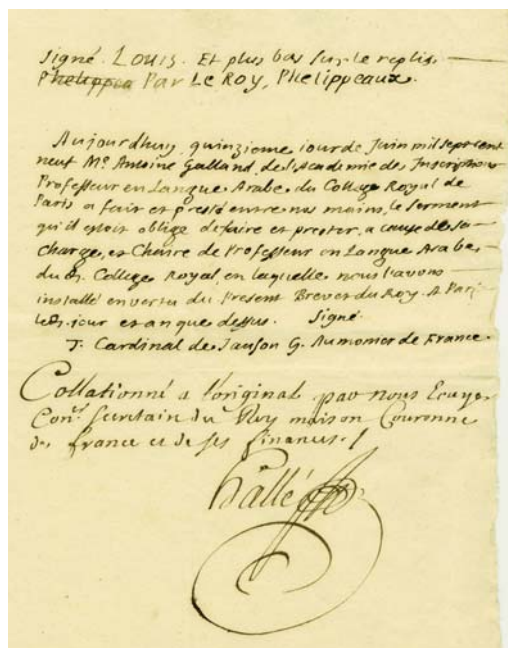 signé. Louis. Et plus bas sur le replis
Phelippea Par Le Roy, Phelippeaux.
Aujourdhuy quinzieme iour de Juin mil sept cent
neuf Mr. Antoine Galland, de l'Academie des Inscriptions
Professeur en Langue Arabe du College Royal de
Paris a fait et presté entre nos mains, le serment
qu'il estoit obligé de faire et prester, a cause de sa
charge, et Chaire de Professeur en Langue Arabe
du d. College Royal, en laquelle nous l'avons
installé en vertu du Present Brevet du Roy. A Paris
les d. jour et an que dessus. Signé.
T. Cardinal de Janson G. Aumonier de France.
Collationné a l'original par nous Ecuyer
Conr. Secretaire du Roy maison Couronne
de france et de ses finances.